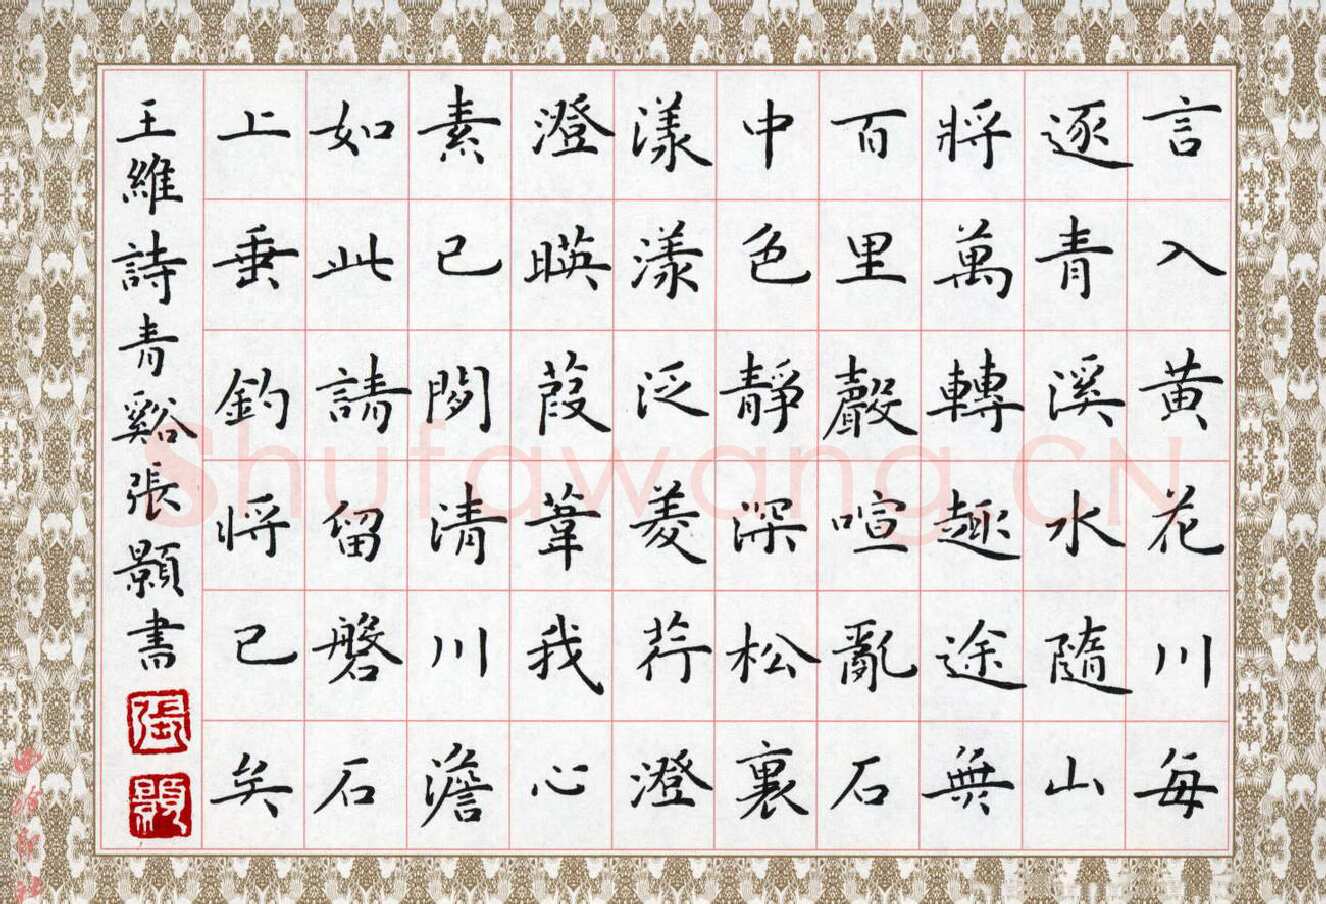 言入黄花川每
逐青溪水隨山
將萬轉趣途無
百里聲喧亂石
中色靜深松裏
漾漾泛菱荇澄
澄暎葭葦我心
素已閑清川澹
如此請留磐石
上垂釣將已矣
王維詩青谿張顥書
張
顥
Shufawang.CN